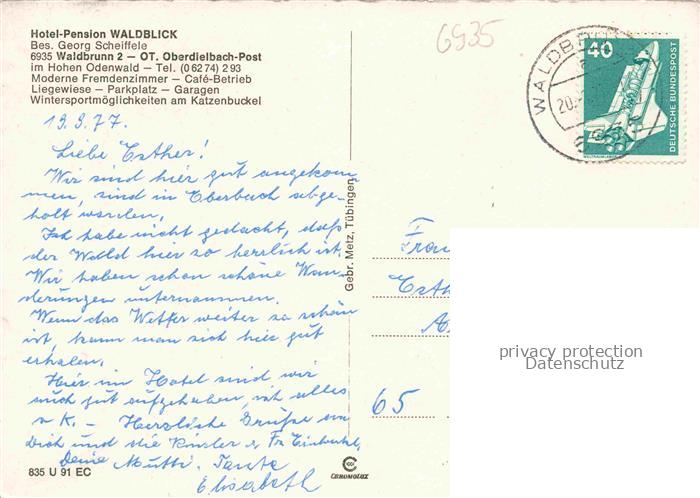 Hotel-Pension WALDBLICK
Bes. Georg Scheiffele
6935 Waldbrunn 2 — OT. Oberdielbach-Post
im Hohen Odenwald — Tel. (0 62 74) 2 93
Moderne Fremdenzimmer — Café-Betrieb
Liegewiese — Parkplatz — Garagen
Wintersportmöglichkeiten am Katzenbuckel
19.9.77.
Liebe Esther!
Wir sind hier gut angekom
men, sind in Eberbach abge-
holt worden.
Ich habe nicht gedacht, daß
der Wald hier so herrlich ist.
Wir haben schon schöne Wan
derungen unternommen.
Wenn das Wetter weiter so schön
ist, kann man sich hier gut
erholen.
Hier im Hotel sind wir
auch gut aufgehoben, ist alles
o K. — Herzliche Grüße an
Dich und die Kinder & Fr.
Deine Mutti. Tante
Elisabeth
835 U 91 EC
Gebr. Metz, Tübingen
CHROMOLUX
6935
WALDBRUNN
20.
40
DEUTSCHE BUNDESPOST
WELTRAUMLABOR
Frau
Esth
65
privacy protection
Datenschutz